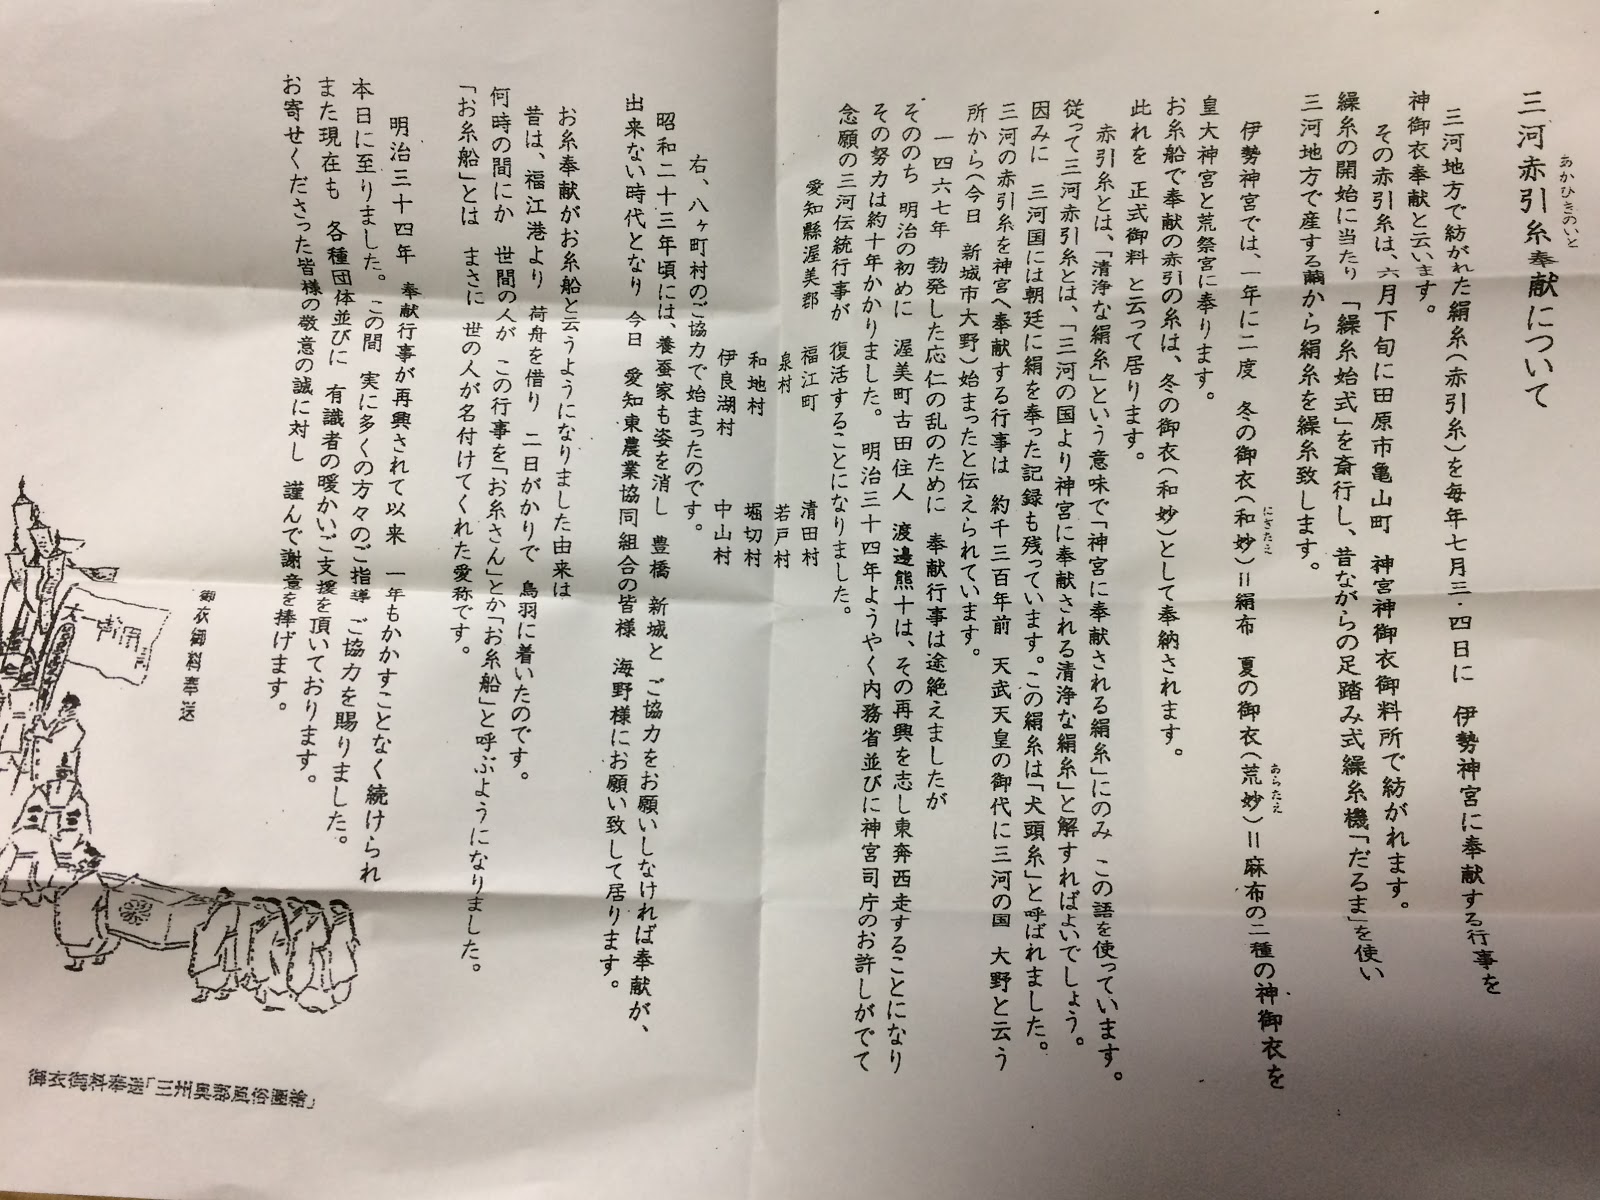 三河赤引糸奉献について
あかひきのいと
三河地方で紡がれた絹糸(赤引糸)を毎年七月三・四日に　伊勢神宮に奉献する行事を
神御衣奉献と云います。
その赤引糸は、六月下旬に田原市亀山町　神宮神御衣御料所で紡がれます。
繰糸の開始に当たり　「繰糸始式」を斎行し、昔ながらの足踏み式繰糸機「だるま」を使い
三河地方で産する繭から絹糸を繰糸致します。
伊勢神宮では、一年に二度　冬の御衣(和妙)＝絹布　夏の御衣(荒妙)＝麻布の二種の神御衣を
にぎたえ
あらたえ
皇大神宮と荒祭宮に奉ります。
お糸船で奉献の赤引の糸は、冬の御衣(和妙)として奉納されます。
此れを　正式御料　と云って居ります。
赤引糸とは、「清浄な絹糸」という意味で「神宮に奉献される絹糸」にのみ　この語を使っています。
従って三河赤引糸とは、「三河の国より神宮に奉献される清浄な絹糸」と解すればよいでしょう。
因みに　三河国には朝廷に絹を奉った記録も残っています。この絹糸は「犬頭糸」と呼ばれました。
三河の赤引糸を神宮へ奉献する行事は　約千三百年前　天武天皇の御代に三河の国　大野と云う
所から(今日　新城市大野)始まったと伝えられています。
一四六七年　勃発した応仁の乱のために　奉献行事は途絶えましたが
そののち　明治の初めに　渥美町古田住人　渡邊熊十は、その再興を志し東奔西走することになり
その努力は約十年かかりました。　明治三十四年ようやく内務省並びに神宮司庁のお許しがでて
念願の三河伝統行事が　復活することになりました。
愛知縣渥美郡　福江町　清田村
泉村　若戸村
和地村　堀切村
伊良湖村　中山村
右、八ヶ町村のご協力で始まったのです。
昭和二十三年頃には、養蚕家も姿を消し　豊橋　新城と　ご協力をお願いしなければ奉献が、
出来ない時代となり　今日　愛知東農業協同組合の皆様　海野様にお願い致して居ります。
お糸奉献がお糸船と云うようになりました由来は
昔は、福江港より　荷舟を借り　二日がかりで　鳥羽に着いたのです。
何時の間にか　世間の人が　この行事を「お糸さん」とか「お糸船」と呼ぶようになりました。
「お糸船」とは　まさに　世の人が名付けてくれた愛称です。
明治三十四年　奉献行事が再興されて以来　一年もかかすことなく続けられ
本日に至りました。この間　実に多くの方々のご指導　ご協力を賜りました。
また現在も　各種団体並びに　有識者の暖かいご支援を頂いております。
お寄せくださった皆様の敬意の誠に対し　謹んで謝意を捧げます。
御衣御料奉送
太一御用
御衣御料奉送「三州奥郡風俗図絵」